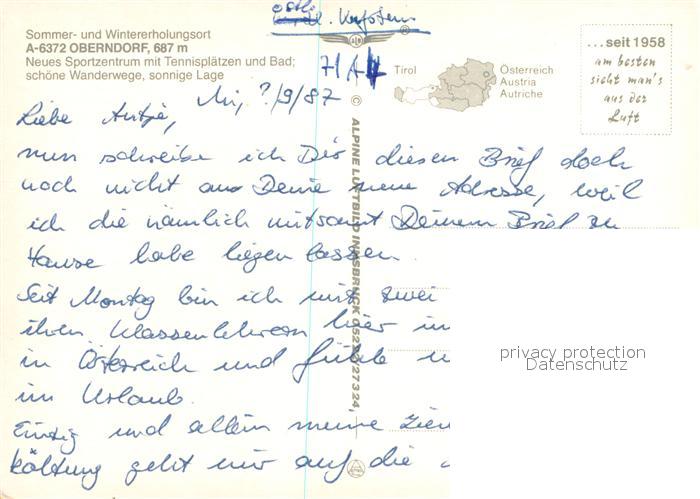 Sommer- und Wintererholungsort
A-6372 OBERNDORF, 687 m
Neues Sportzentrum mit Tennisplätzen und Bad;
schöne Wanderwege, sonnige Lage
Tirol
Österreich
Austria
Autriche
...seit 1958
am besten
sieht man's
aus der
Luft
© ALPINE LUFTBILD INNSBRUCK 05222/27324,
Mi, ?/9/87
Liebe Antje,
nun schreibe ich Dir diesen Brief doch
noch nicht an Deine neue Adresse, weil
ich die nämlich mitsamt Deinem Brief zu
Hause habe liegen lassen.
Seit Montag bin ich mit zwei
ihren Klassenlehrern hier in
in Österreich und fühle
im Urlaub.
Einzig und allein meine
kältung geht mir auf die
privacy protection
Datenschutz